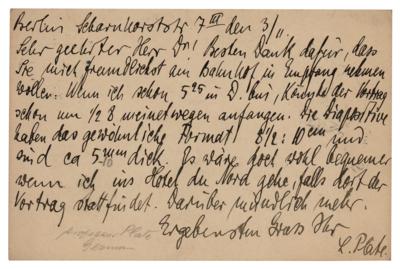 Berlin Scharnhorststr 7 III den 3/11
Sehr geehrter Herr Dr! Besten Dank dafür, dass
Sie mich freundlichst am Bahnhof in Empfang nehmen
wollen. Wenn ich schon 5 25 in D. bin, könnte der Vortrag
schon um 1/2 8 meinetwegen anfangen. Die Diapositive
haben das gewöhnliche Format 8 1/2 : 10 cm und
sind ca 5 mm dick. Es wäre doch wohl bequemer
wenn ich ins Hotel du Nord gehe, falls dort der
Vortrag stattfindet. Darüber mündlich mehr.
Ergebensten Gruss Ihr
L. Plate.
Professor Plate
German